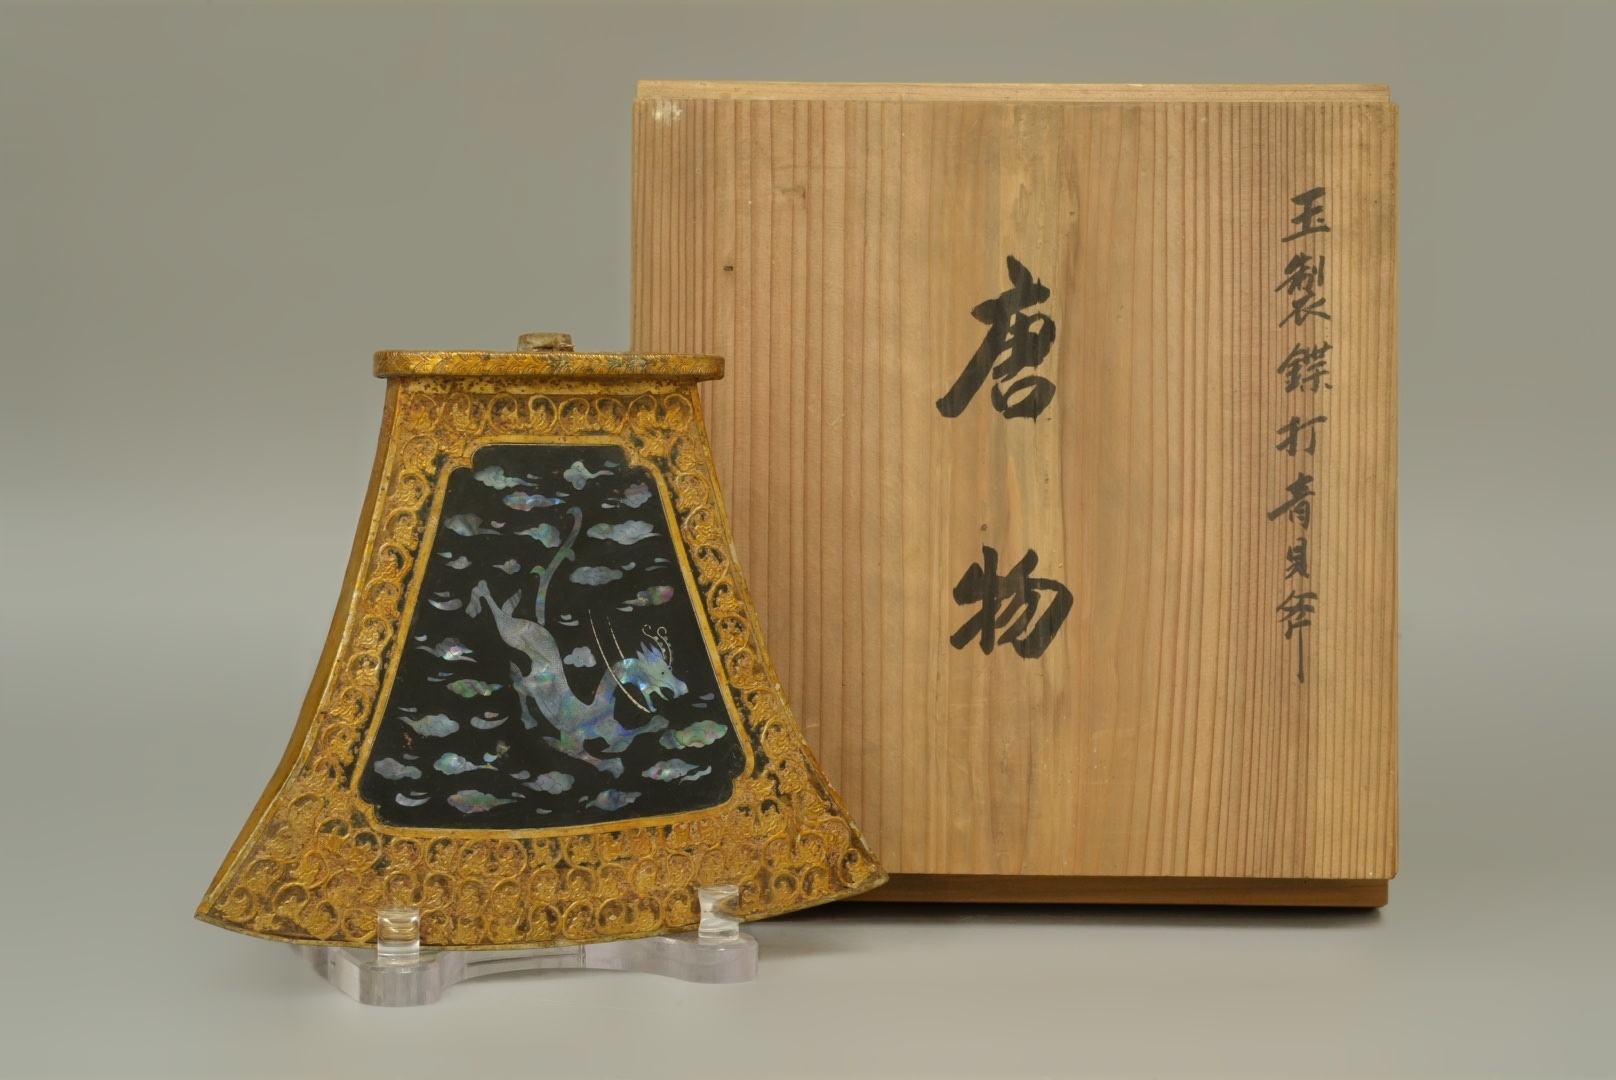 玉製鍱打青貝斧
唐物